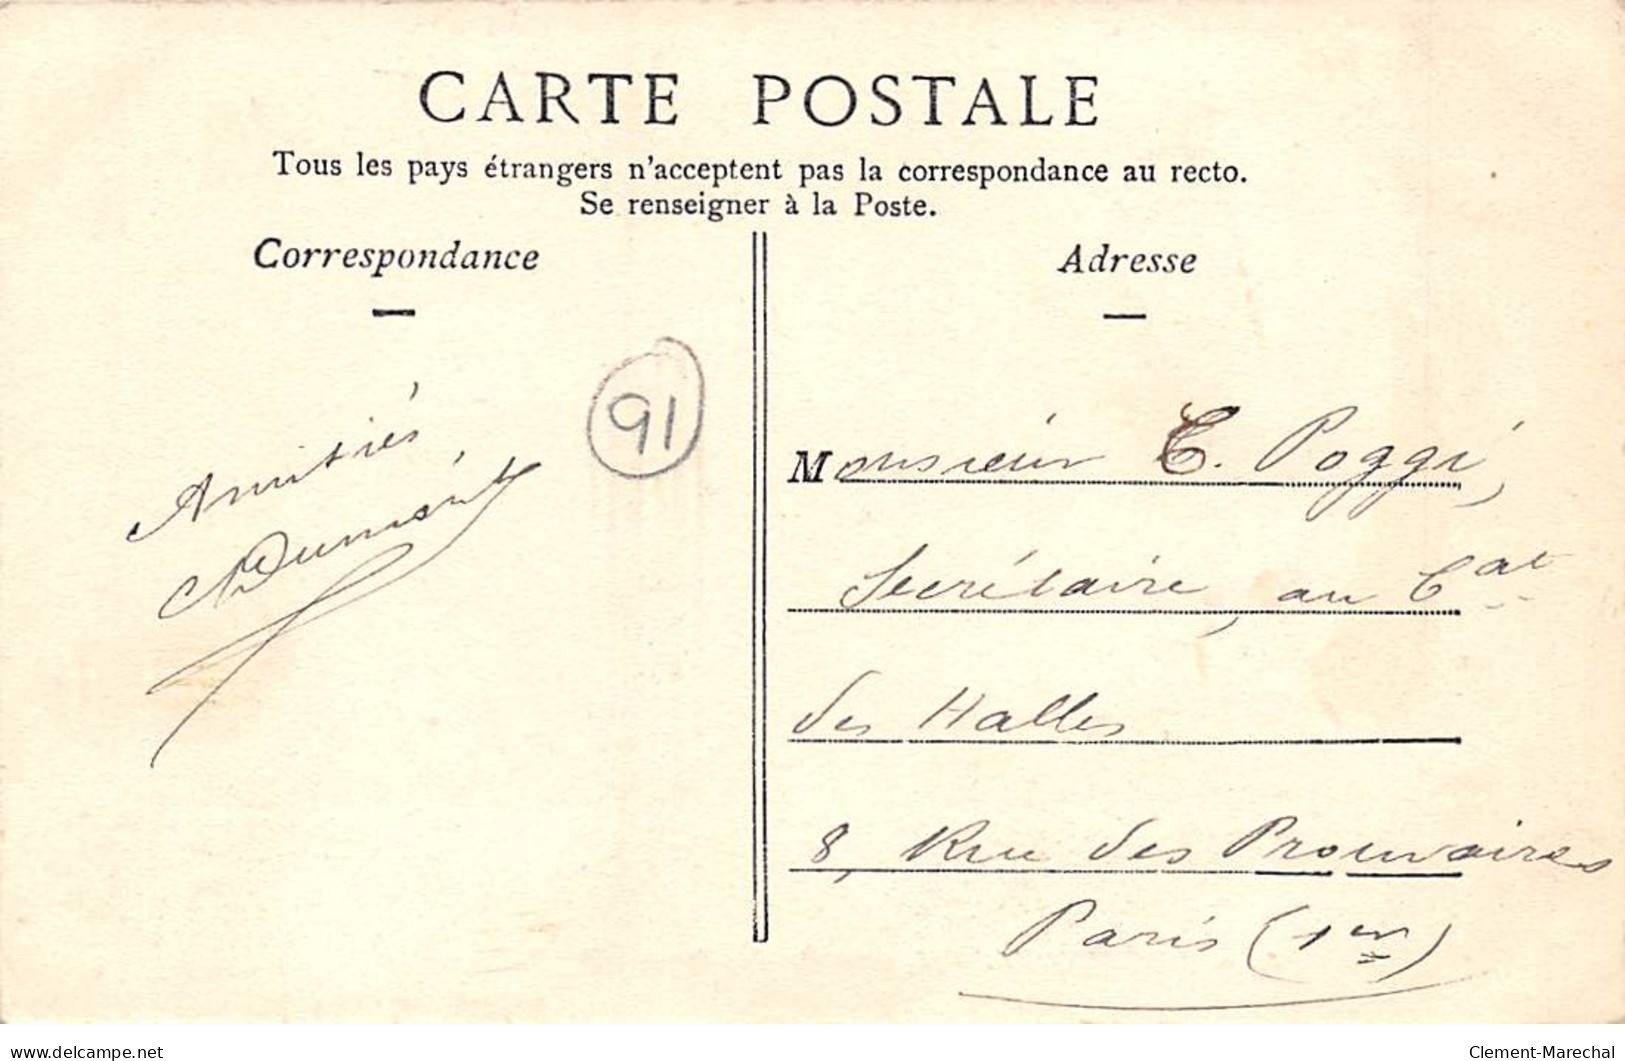 CARTE POSTALE
Tous les pays étrangers n'acceptent pas la correspondance au recto.
Se renseigner à la Poste.
Correspondance
Adresse
91
Amitiés
Dumont
Monsieur C. Poggi,
Secrétaire, au Cat
des Halles
8, Rue des Prouvaires
Paris (1er)
www.delcampe.net
Clement-Marechal